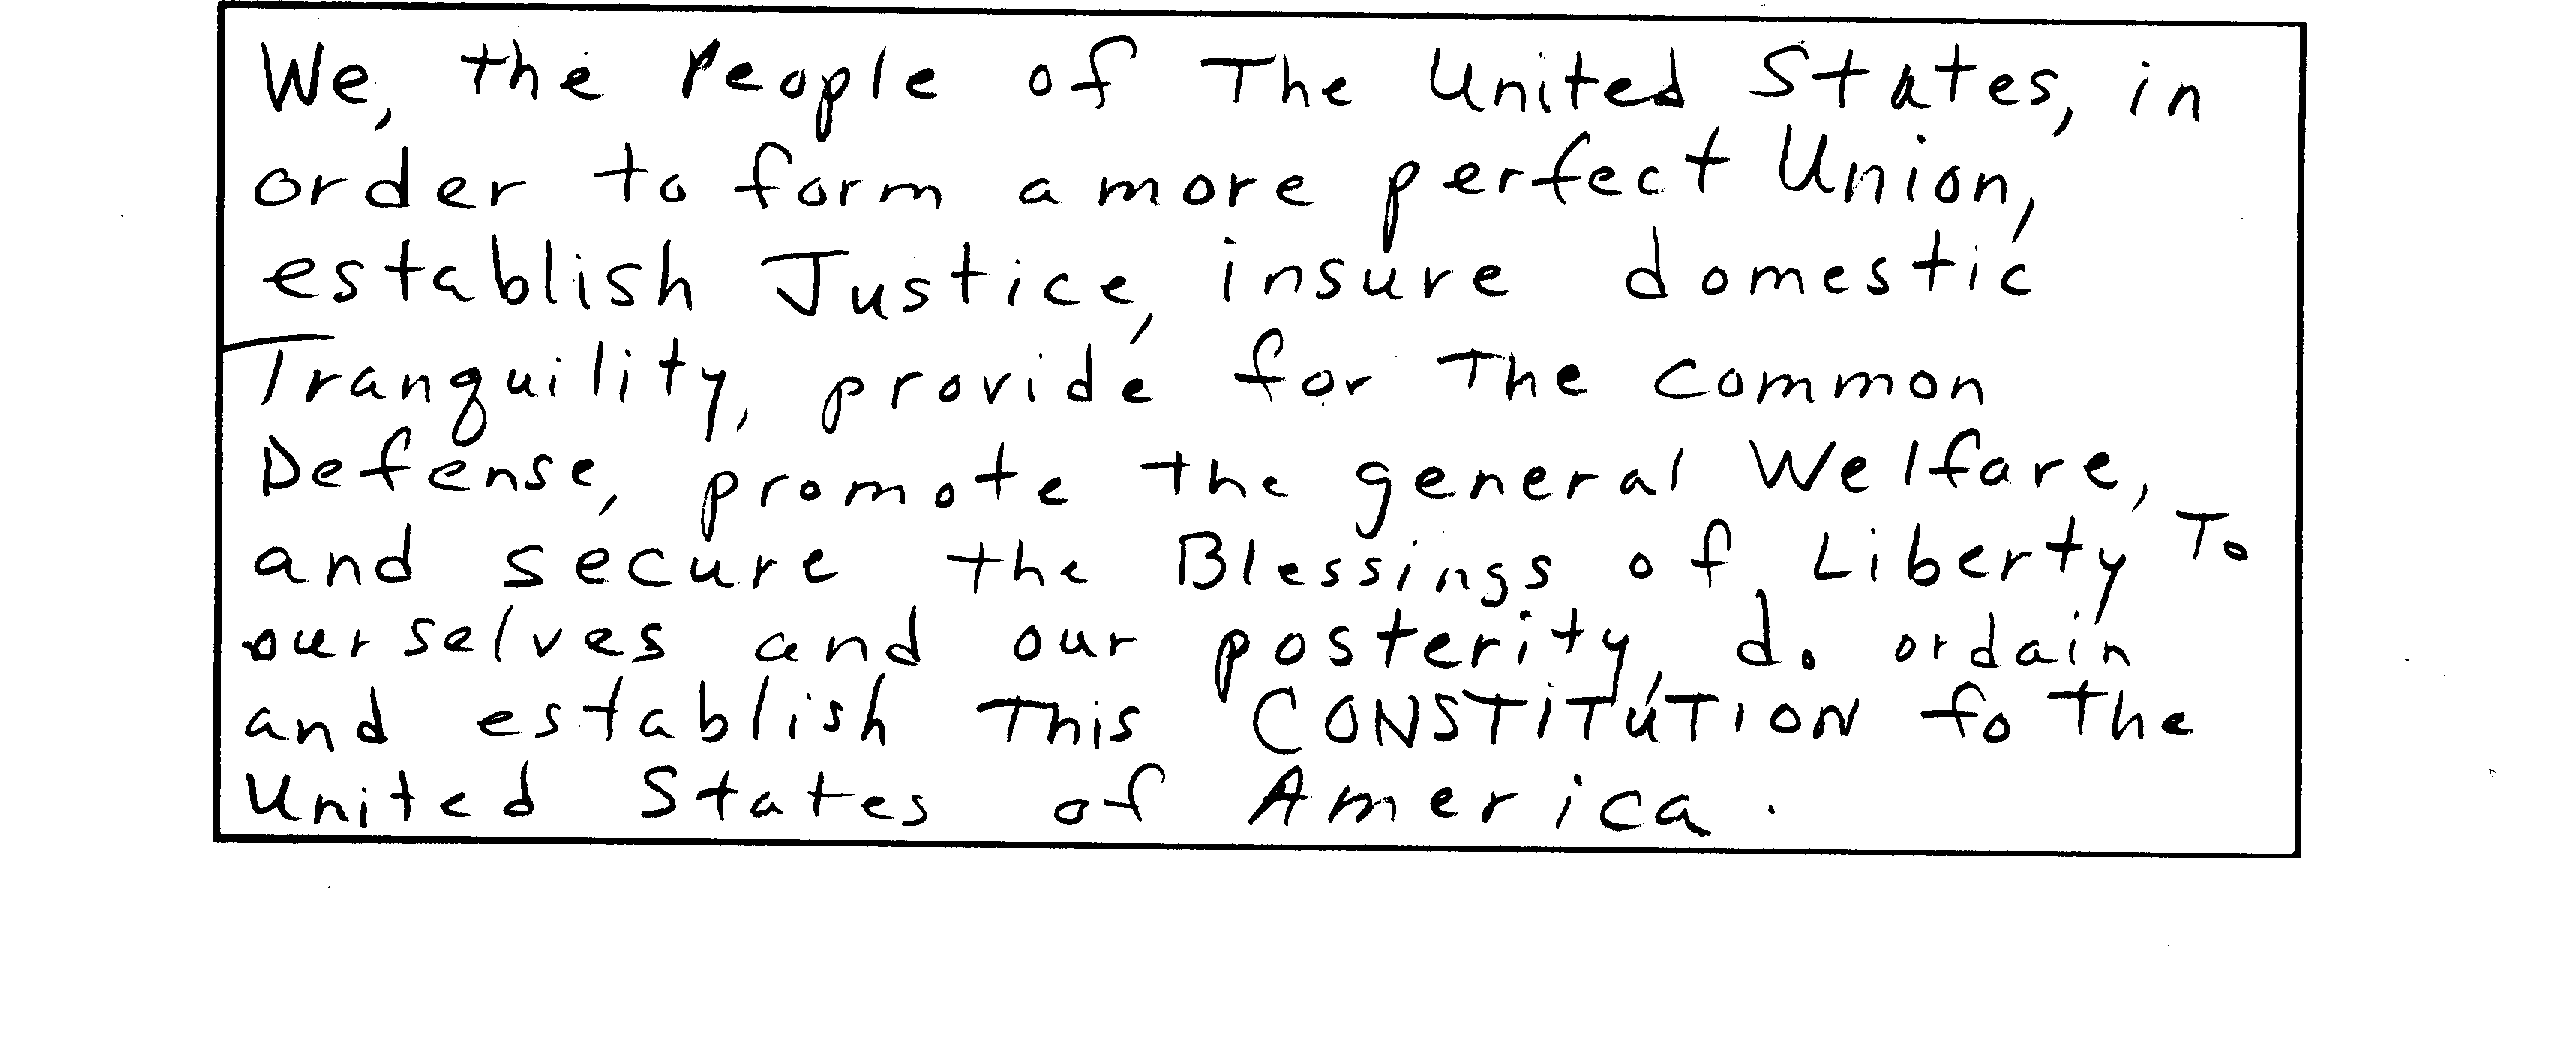 We, the People of The United States, in
order to form a more perfect Union,
establish Justice, insure domestic
Tranquility, provide for The common
Defense, promote the general Welfare,
and secure the Blessings of Liberty To
ourselves and our posterity, do ordain
and establish This CONSTITUTION fo The
United States of America.